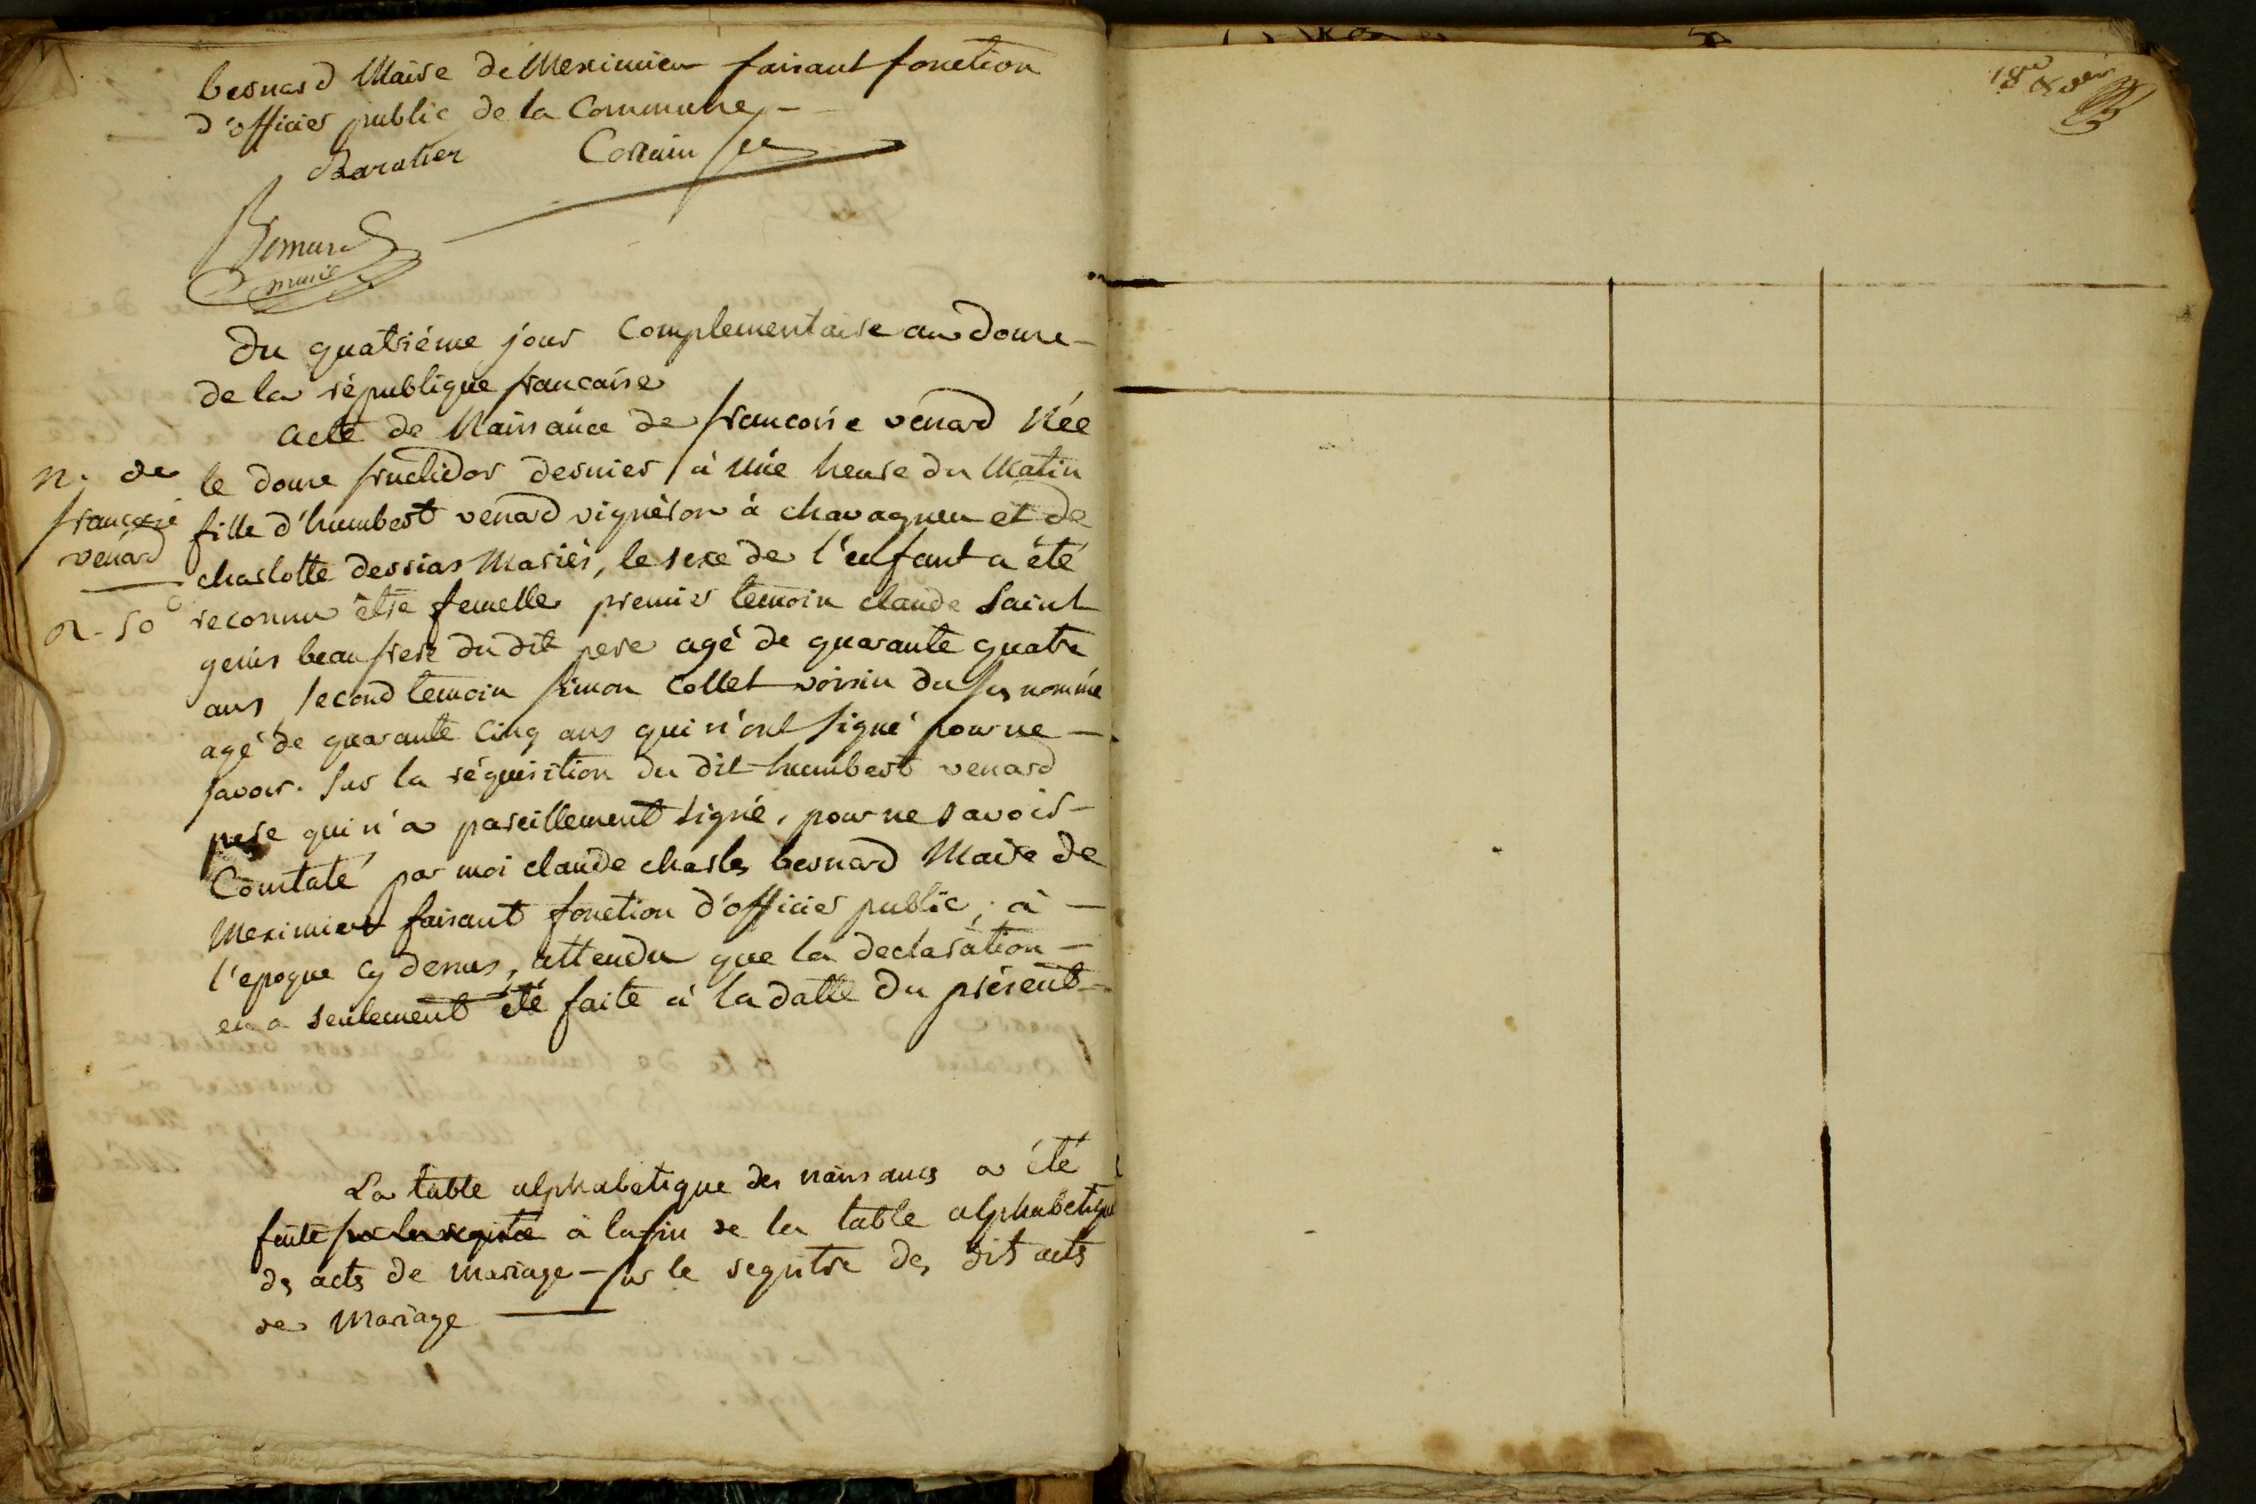 bernard Maire de Meximieu faisant fonction
d'officier public de la Commune —
Baratier Cottain
Bernard
maire
Du quatriéme jour Complementaire an douze —
de la république francaise
acte de Naissance de francoise venard Née
le douze fructidor dernier à une heure du Matin
n. de
francoise
venard
n. 50
fille d'humbert venard vignèron à chavagneu et de
charlotte derrias Mariés, le sexe de l'enfant a été
reconnu être femelle premier temoin claude Saint
genis beau frere du dit pere agé de quarante quatre
ans second temoin Simon Collet voisin du susnommé
agé de quarante Cinq ans qui n'ont signé pour ne —
savoir. Sur la réquisition du dit humbert venard
pere qui n'a pareillement signé, pour ne savoir —
Constaté par moi claude charles bernard Maire de
Meximieu faisant fonction d'officier public, à —
l'epoque cy desus, attendu que la declaration —
en a seulement été faite à la datte du présent —
La table alphabetique des naissances a été
faite sur le registre à la fin de la table alphabetique
des actes de mariage — sur le registre des dits actes
de Mariage —
18me &amp; der